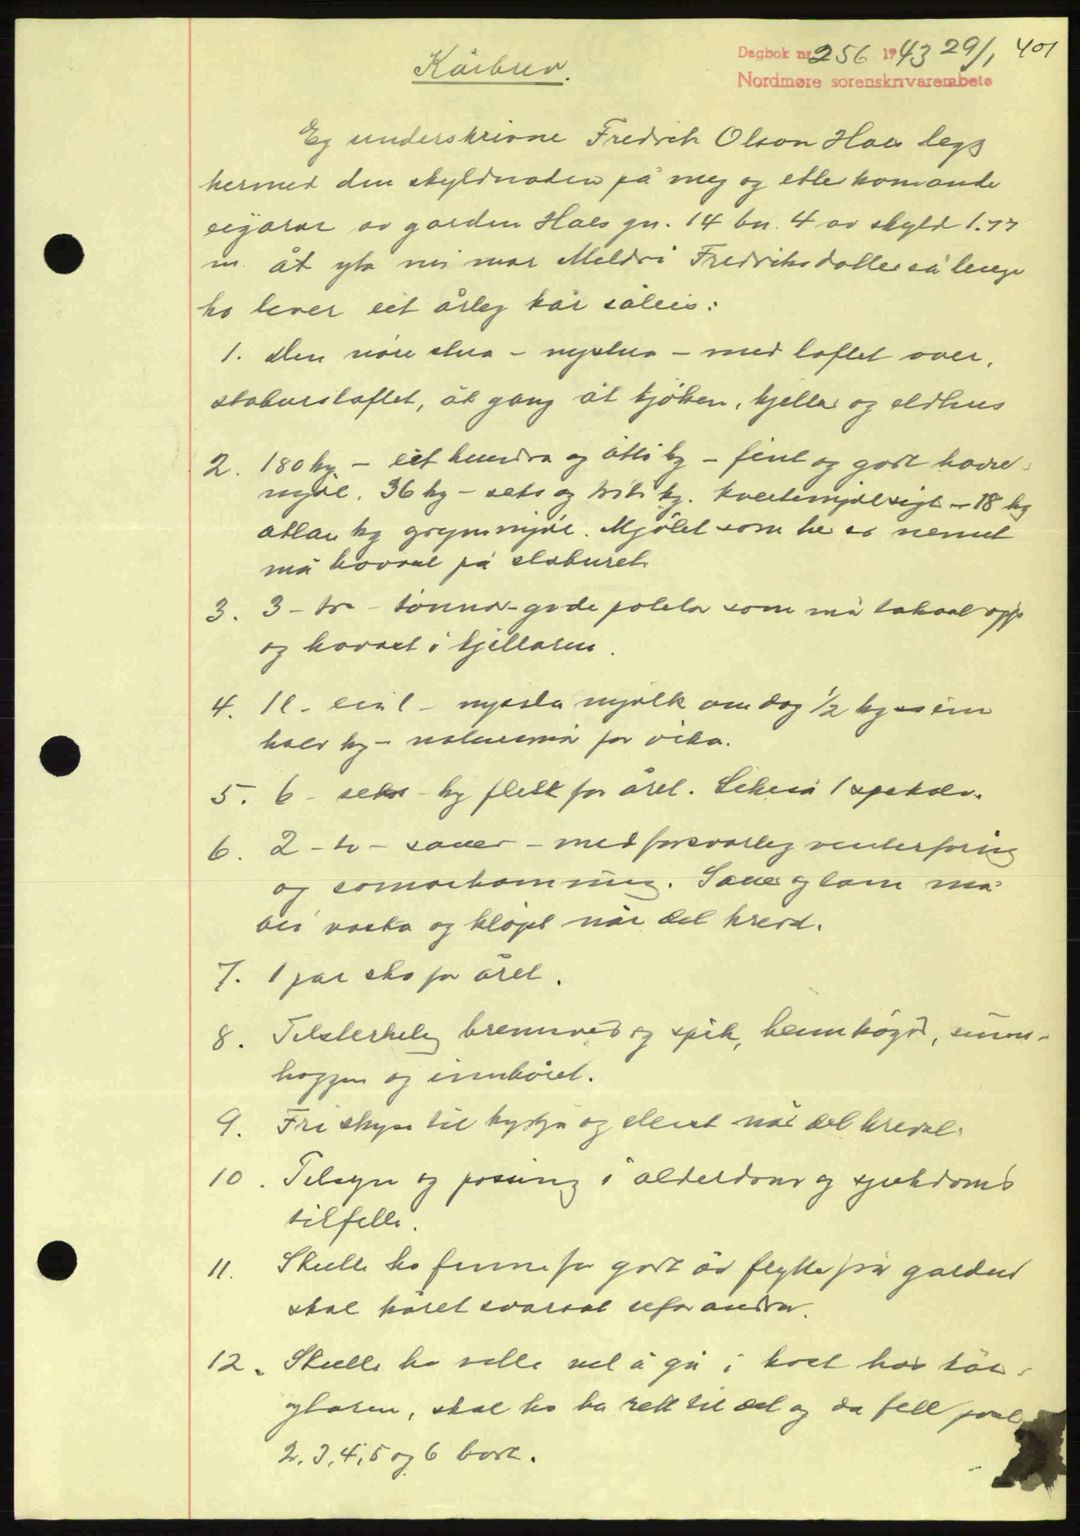 Dagbok nr. 256 1943 29/1 401
Nordmøre sorenskrivarembete
Kårbrev.
Eg underskrivne Fredrik Olson Hals legg
hermed den skyldnaden på meg og etterkomande
eigarar av garden Hals gn. 14 bn. 4 av skyld 1.77
m. åt yta mi mor Meldri Fredriksdotter så lenge
ho lever eit årleg kår såleis:
1. Den nore stua - nystua - med loftet over,
stabursloftet, åt gang åt kjøken, kjellar og eldhus
2. 180 kg. - eit hundra og åtti kg - fint og godt havre-
mjøl. 36 kg - seks og tritti kg. kveitemjølsigt - 18 kg
atlan kg grynmjøl. Mjølet som her er nemnt
må havast på staburet.
3. 3 - tre - tønner gode poteter som må takast opp
og havast i kjellaren.
4. 1 l - ein l - nysila mjølk om dag 1/2 kg - ein
halv kg - natursmør for vika.
5. 6 - seks - kg flesk for året. Likeså 1 spekalv.
6. 2 - to - sauer - med forsvarleg vinterforing
og somarhamning. Sauer og lam må
bli vaska og kløpt når det krevst.
7. 1 par sko for året.
8. Tilstrekkeleg brennved og spik, heimkøyrd, smon-
hoggen og innbåret.
9. Fri skyss til kyrkja og elles når det krevst.
10. Tilsyn og passing i alderdom og sjukdoms
tilfelle.
11. Skulle ho finne for godt å flytte frå garden
skal kåret svarast uforandra.
12. Skulle ho velle vel å gå i kost hos kår-
ytaren, skal ho ha rett til det og da fell post
2, 3, 4, 5 og 6 bort.